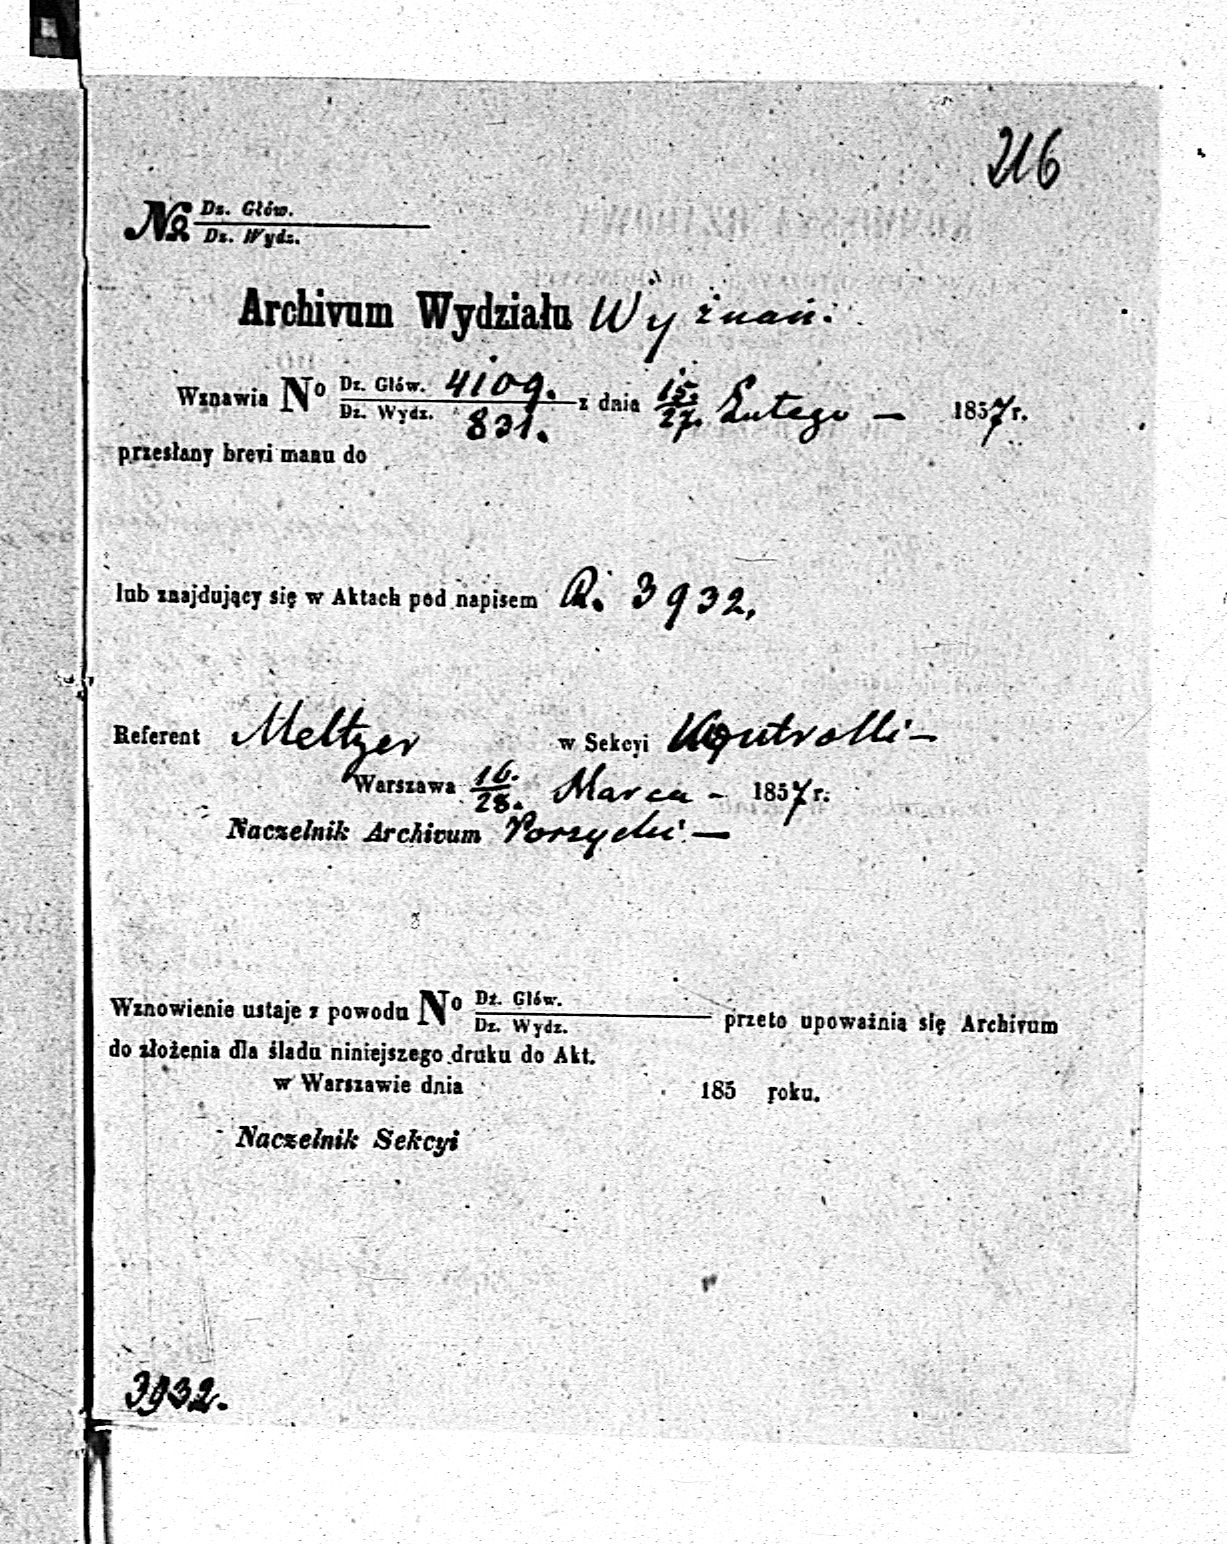 216
№ Dz. Głów.
Dz. Wydz.
Archivum Wydziału Wyznań.
Wznawia No Dz. Głów. 4109. z dnia 15./27. Lutego — 1857 r.
Dz. Wydz. 831.
przesłany brevi manu do
lub znajdujący się w Aktach pod napisem R. 3932,
Referent Meltzer w Sekcyi Kontrolli —
Warszawa 16./28. Marca - 1857 r.
Naczelnik Archivum —
Wznowienie ustaje z powodu No Dz. Głów. przeto upoważnia się Archivum
Dz. Wydz.
do złożenia dla śladu niniejszego druku do Akt.
w Warszawie dnia 185 roku.
Naczelnik Sekcyi
3932.